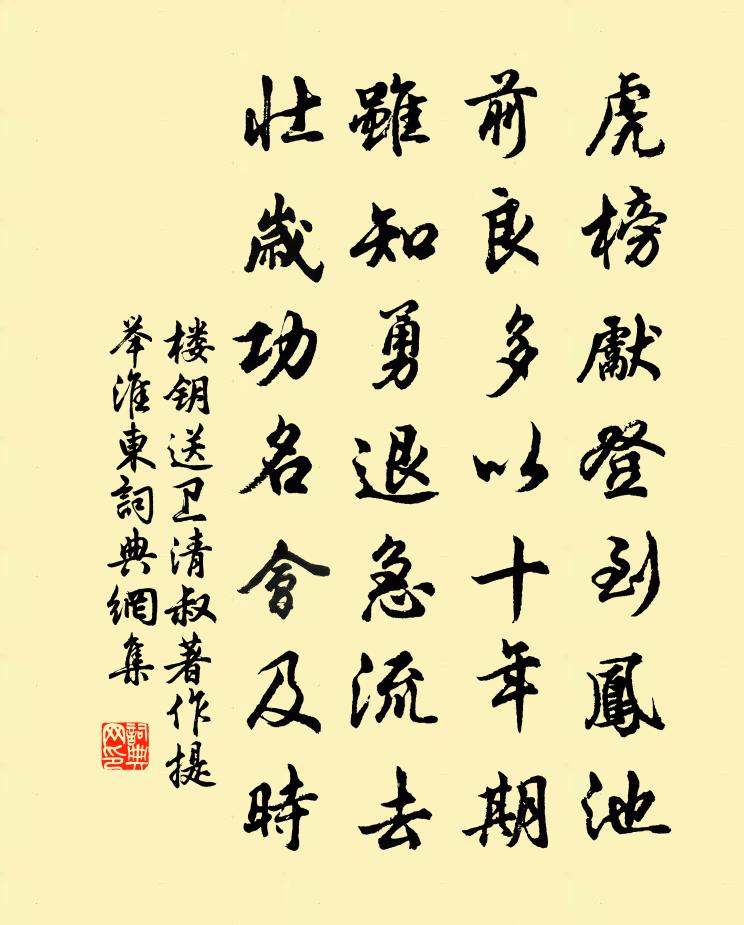 虎榜獻登到鳳池
前良多以十年期
雖知勇退急流去
壯歲功名會及時
楼钥送卫清叔著作提
举淮東詞典網集
詞典网印